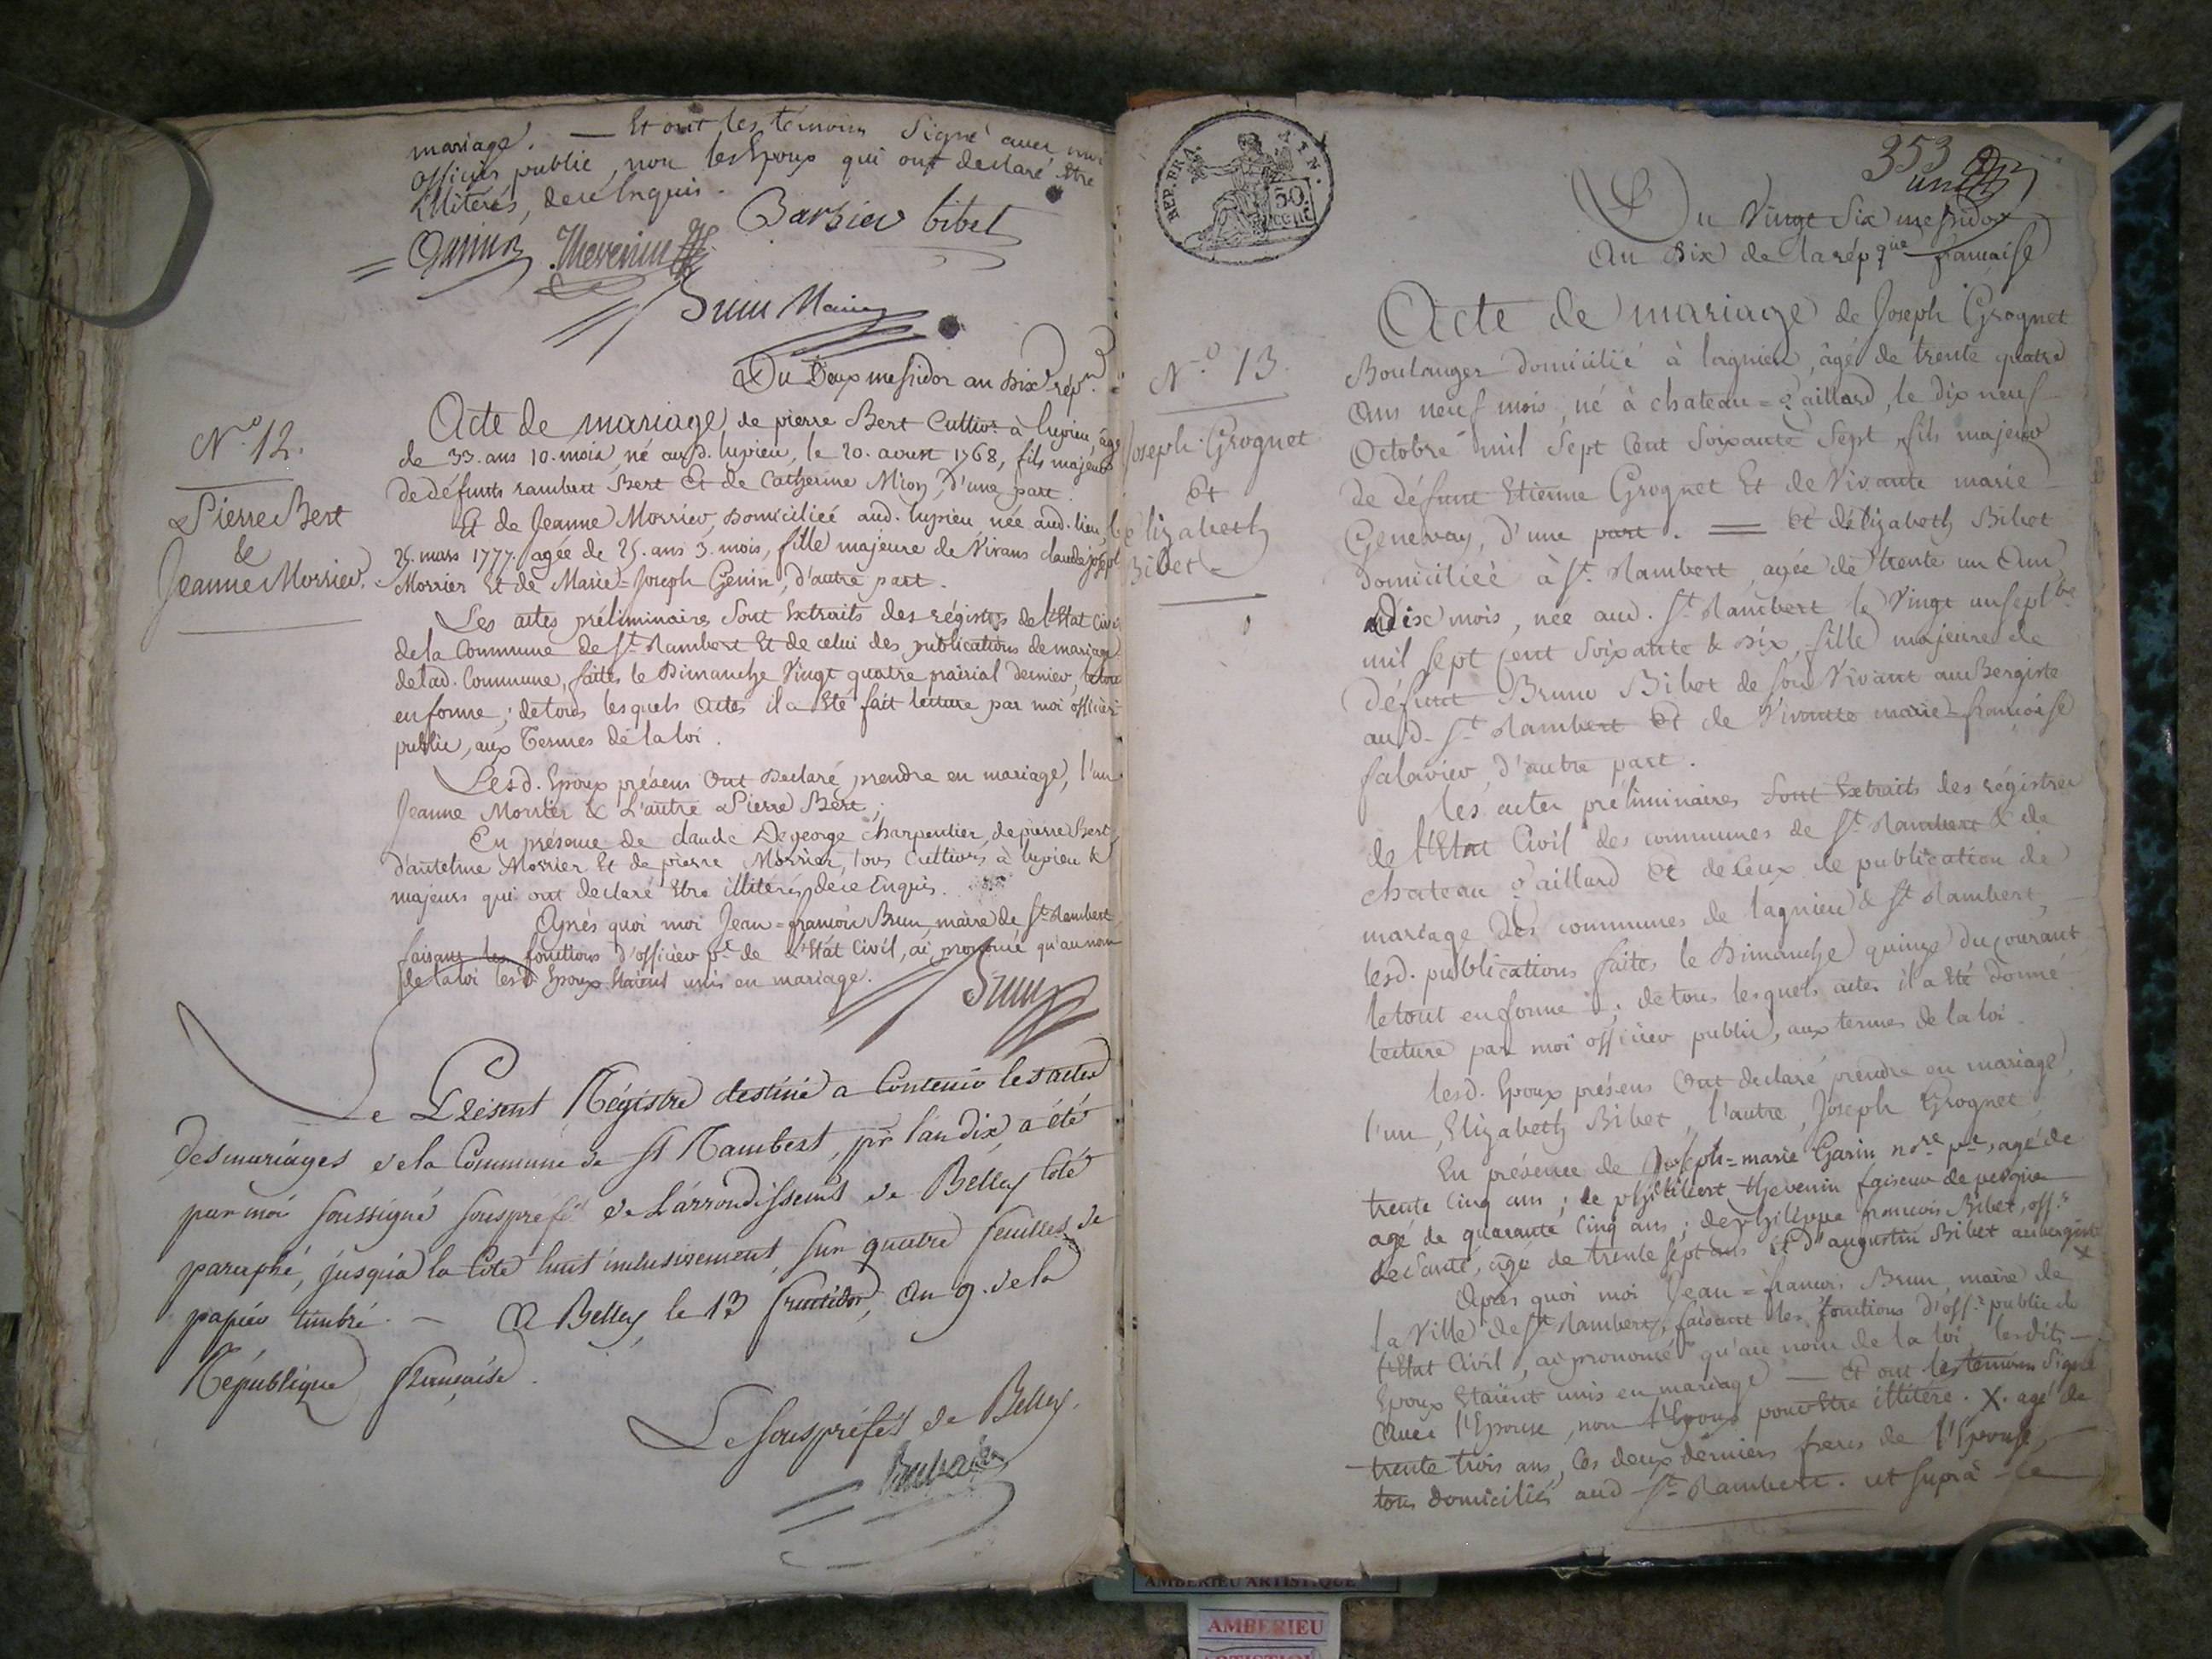 mariage. — Et ont les témoins Signé avec moi
officier public, non les Epoux qui ont declaré être
illiterés, de ce Enquis.
Barbier bibet
Garin Thevenin
Brun Maire
Du Deux messidor an Dix rép.
N.o 12.
Pierre Bert
&
Jeanne Morrier.
Acte de mariage de pierre Bert Cultivr. à lupieu, âgé
de 33. ans 10. mois, né aud. lupieu, le 20. aoust 1768, fils majeur
de défunts rambert Bert Et de Catherine Mion, d'une part.
Et de Jeanne Morrier, Domiciliée aud. lupieu née aud. lieu, le
25. mars 1777. agée de 25. ans 3. mois, fille majeure de Vivans claude joseph
Morrier Et de Marie=Joseph Genin, d'autre part.
Les actes préliminaires Sont Extraits des régistres de l'Etat Civil
de la Commune de St. Rambert Et de celui des publications de mariage
de lad. Commune, faites le Dimanche Vingt quatre prairial dernier, le tout
en forme; de tous lesquels actes il a Eté fait lecture par moi officier
public, aux Termes de la loi.
Lesd. Epoux présens Ont Declaré prendre en mariage, l'un
Jeanne Morrier & L'autre Pierre Bert;
En présence de claude Degeorge charpentier, de pierre Bert,
d'antelme Morrier Et de pierre Morrier, tous Cultivrs à lupieu &
majeurs qui ont declaré Etre illiterés, de ce Enquis.
Après quoi moi Jean=françois Brun, maire de St. Rambert
faisant les fonctions d'officier pc. de l'Etat Civil, ai prononcé qu'au nom
de la loi lesd. Epoux Etaient unis en mariage.
Brun
Le Présent Régistre destiné a Contenir les actes
des mariages de la Commune de St Rambert, pr. l'an dix, a été
par moi soussigné souspréfet de L'arrondissemt de Belley coté
paraphé, jusqu'à la Cote huit inclusivement, sur quatre feuilles de
papier timbré. — A Belley, le 13 fructidor, an 9. de la
République française.
Le souspréfet de Belley.
REP. FRA. 50 CENT.
353
Du Vingt Six messidor
An Dix de la répque française
N.o 13.
Joseph Grognet
Et
Elizabeth
Bibet
Acte de mariage de Joseph Grognet
Boulanger domicilié à lagnieu, âgé de trente quatre
ans neuf mois, né à chateau=Gaillard, le dix neuf
Octobre mil Sept Cent Soixante Sept, fils majeur
de défunt Etienne Grognet Et de Vivante marie
Genevay, d'une part. — Et d'élizabeth Bibet
domiciliée à St. Rambert, agée de trente un ans
dix mois, née aud. St. Rambert le Vingt un septbre
mil sept Cent Soixante & Dix, fille majeure de
défunt Bruno Bibet de son Vivant auBergiste
aud. St. Rambert Et de Vivante marie=françoise
falavier, d'autre part.
les actes préliminaires Sont Extraits des régistres
de l'Etat Civil des communes de St. Rambert & de
chateau Gaillard Et de ceux de publication de
mariage Des communes de lagnieu & St. Rambert,
lesd. publications faites le Dimanche quinze du courant
le tout en forme; de tous lesquels actes il a Eté donné
lecture par moi officier public, aux termes de la loi.
lesd. Epoux présens Ont declaré prendre en mariage,
l'un, Elizabeth Bibet, l'autre, Joseph Grognet;
En présence de Joseph=marie Garin nre. pc., agé de
trente cinq ans; de philibert thevenin faiseur de peigne
agé de quarante cinq ans; de philippe françois Bibet, offr.
de santé, agé de trente sept ans Et d'augustin Bibet aubergiste X
Après quoi moi Jean=françois Brun, maire de
la Ville de St. Rambert, faisant les fonctions d'offr. public de
l'Etat Civil, ai prononcé qu'au nom de la loi, lesdits
Epoux Etaient unis en mariage — Et ont les temoins Signé
avec l'Epouse, non l'Epoux pour Etre illitéré. X. agé de
trente trois ans, les deux derniers freres de l'Epouse,
tous domiciliés aud St. Rambert. ut suprà
AMBERIEU ARTISTIQUE
AMBERIEU
ARTISTIQUE